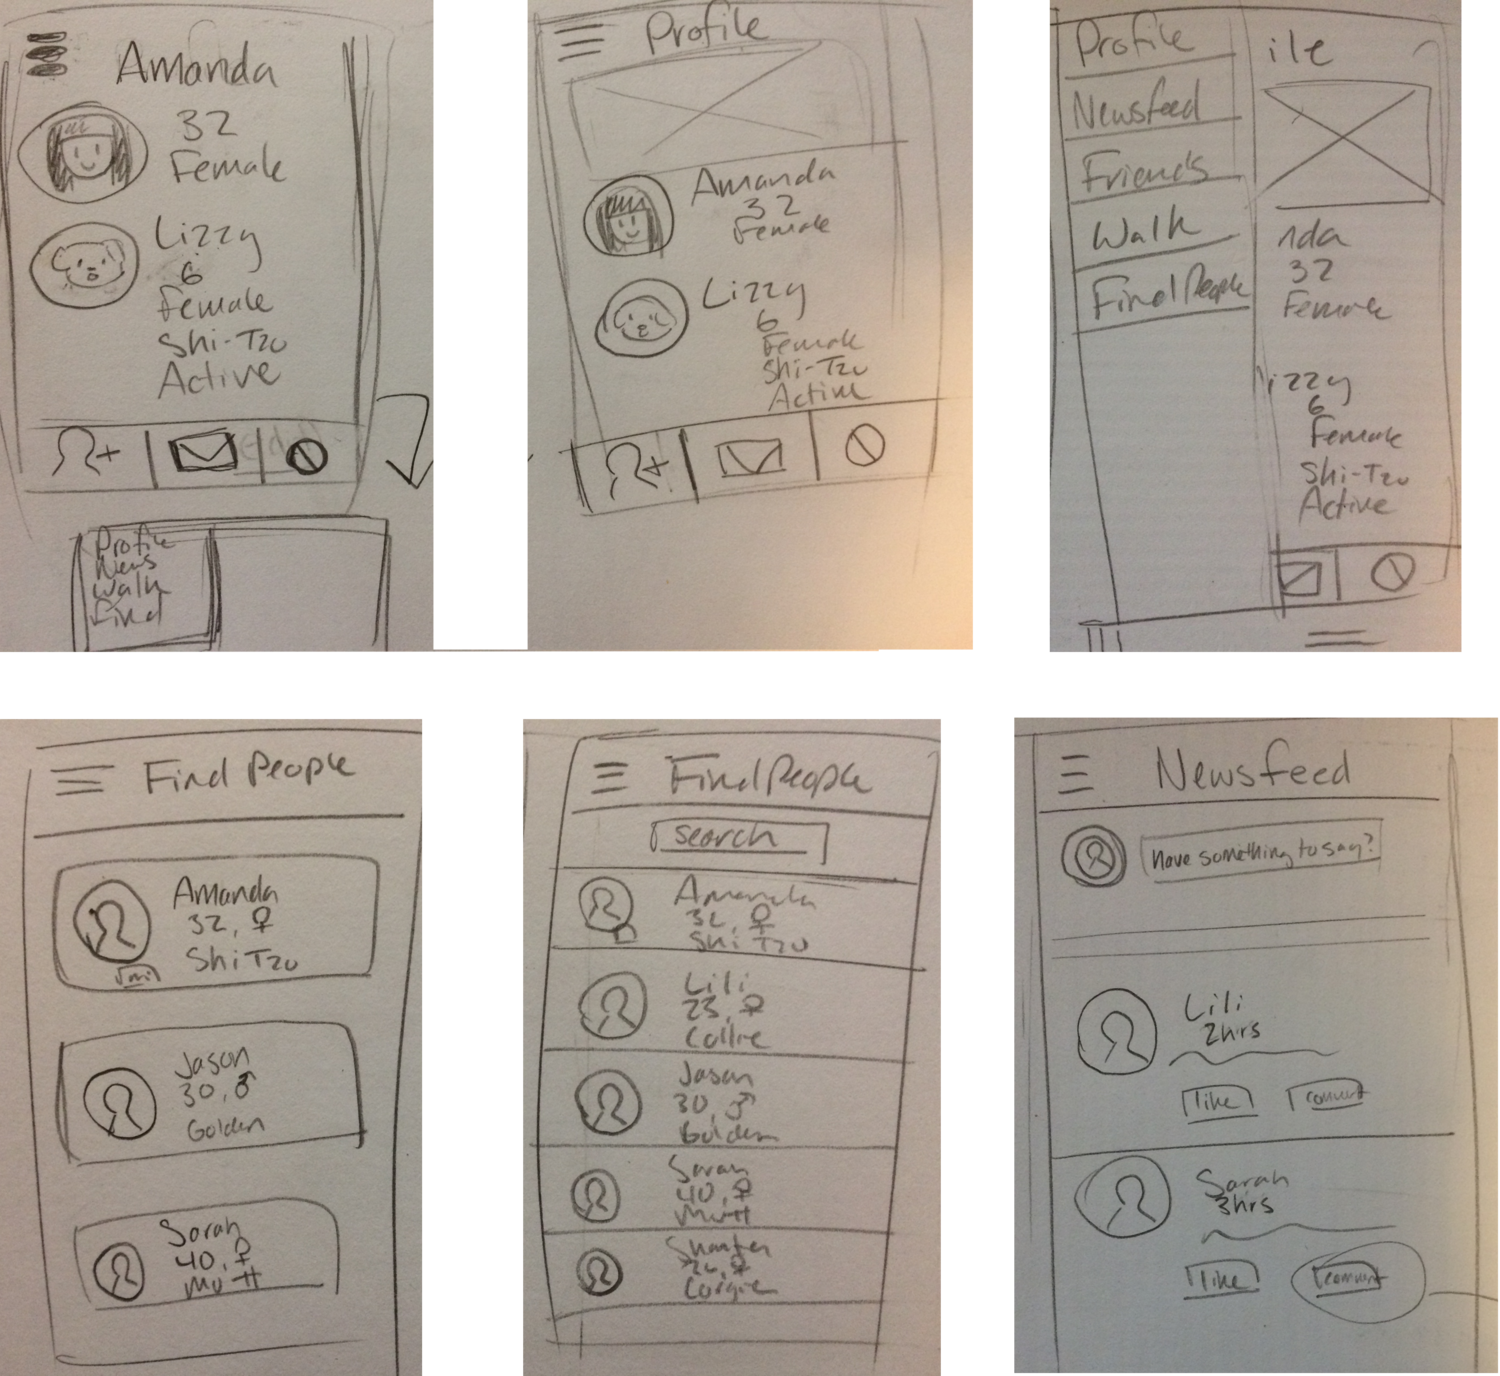 Amanda
32
Female
Lizzy
6
Female
Shi-Tzu
Active
Profile
News
Walk
Find
Profile
Amanda
32
Female
Lizzy
6
Female
Shi-Tzu
Active
Profile
Newsfeed
Friends
Walk
Find People
ile
nda
32
Female
izzy
6
Female
Shi-Tzu
Active
Find People
Amanda
32, ♀
Shi Tzu
Jason
30, ♂
Golden
Sarah
40, ♀
Mutt
Find People
search
Amanda
32, ♀
Shi Tzu
Lili
23, ♀
Collie
Jason
30, ♂
Golden
Sarah
40, ♀
Mutt
♀
Corgie
Newsfeed
Have something to say?
Lili
2hrs
like
comment
Sarah
3hrs
like
comment